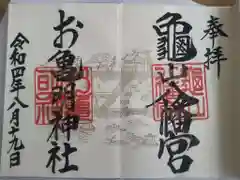 奉拝
亀山八幡宮
お亀明神社
令和四年八月十九日